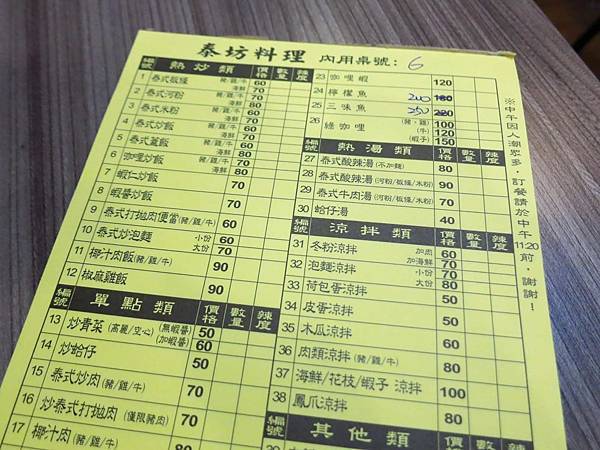 泰坊料理 內用桌號：6
編號 熱炒類 價格 數量 辣度
1 泰式板條 (豬/雞/牛) 60
海鮮 70
2 泰式河粉 (豬/雞/牛) 60
海鮮 80
3 泰式米粉 (豬/雞/牛) 60
海鮮 70
4 泰式炒飯 (豬/雞/牛) 60
海鮮 70
5 泰式蓋飯 (豬/雞/牛) 60
海鮮 70
6 咖哩炒飯 (豬/雞/牛) 60
海鮮 70
7 蝦仁炒飯 70
8 蝦醬炒飯 70
9 泰式打拋肉便當(豬/雞/牛) 60
10 泰式炒泡麵 小份 60
大份 70
11 椰汁肉飯(豬/雞/牛) 90
12 椒麻雞飯 90
編號 單點類 價格 數量 辣度
13 炒青菜 (高麗/空心) (無蝦醬) 50
(加蝦醬) 60
14 炒蛤仔 50
15 泰式炒肉(豬/雞/牛) 70
16 炒泰式打拋肉 (僅限豬肉) 70
17 椰汁肉 (豬/雞/牛) 80
23 咖哩蝦 120
24 檸檬魚 200 180
25 三味魚 250 220
26 綠咖哩 (豬、雞) 100
(牛) 120
(蝦子) 150
編號 熱湯類 價格 數量 辣度
27 泰式酸辣湯 (不加麵) 80
28 泰式酸辣湯 (河粉/板條/米粉) 90
29 泰式牛肉湯 (河粉/板條/米粉) 70
30 蛤仔湯 40
編號 涼拌類 價格 數量 辣度
31 冬粉涼拌 加肉 60
加海鮮 70
32 泡麵涼拌 小份 60
大份 70
33 荷包蛋涼拌 80
34 皮蛋涼拌 60
35 木瓜涼拌 50
36 肉類涼拌 (豬/雞/牛) 80
37 海鮮/花枝/蝦子 涼拌 100
38 鳳爪涼拌 80
編號 其他類 價格 數量 辣度
※中午因人潮眾多，訂餐請於中午11:20前，謝謝！